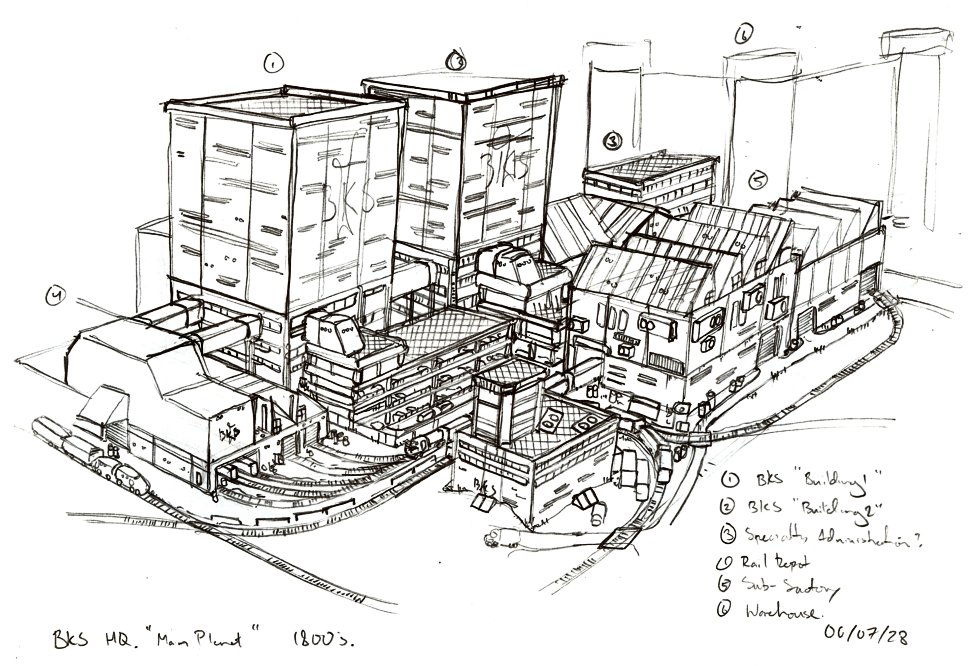 ① ③ 6
③
5
4
BKS BKS
BKS
BKS
① BKS "Building 1"
② BKS "Building 2"
③ Specialty Administration?
④ Rail Depot
⑤ Sub-Factory
⑥ Warehouse.
BKS HQ. "Main Planet" 1800's.
00/07/28